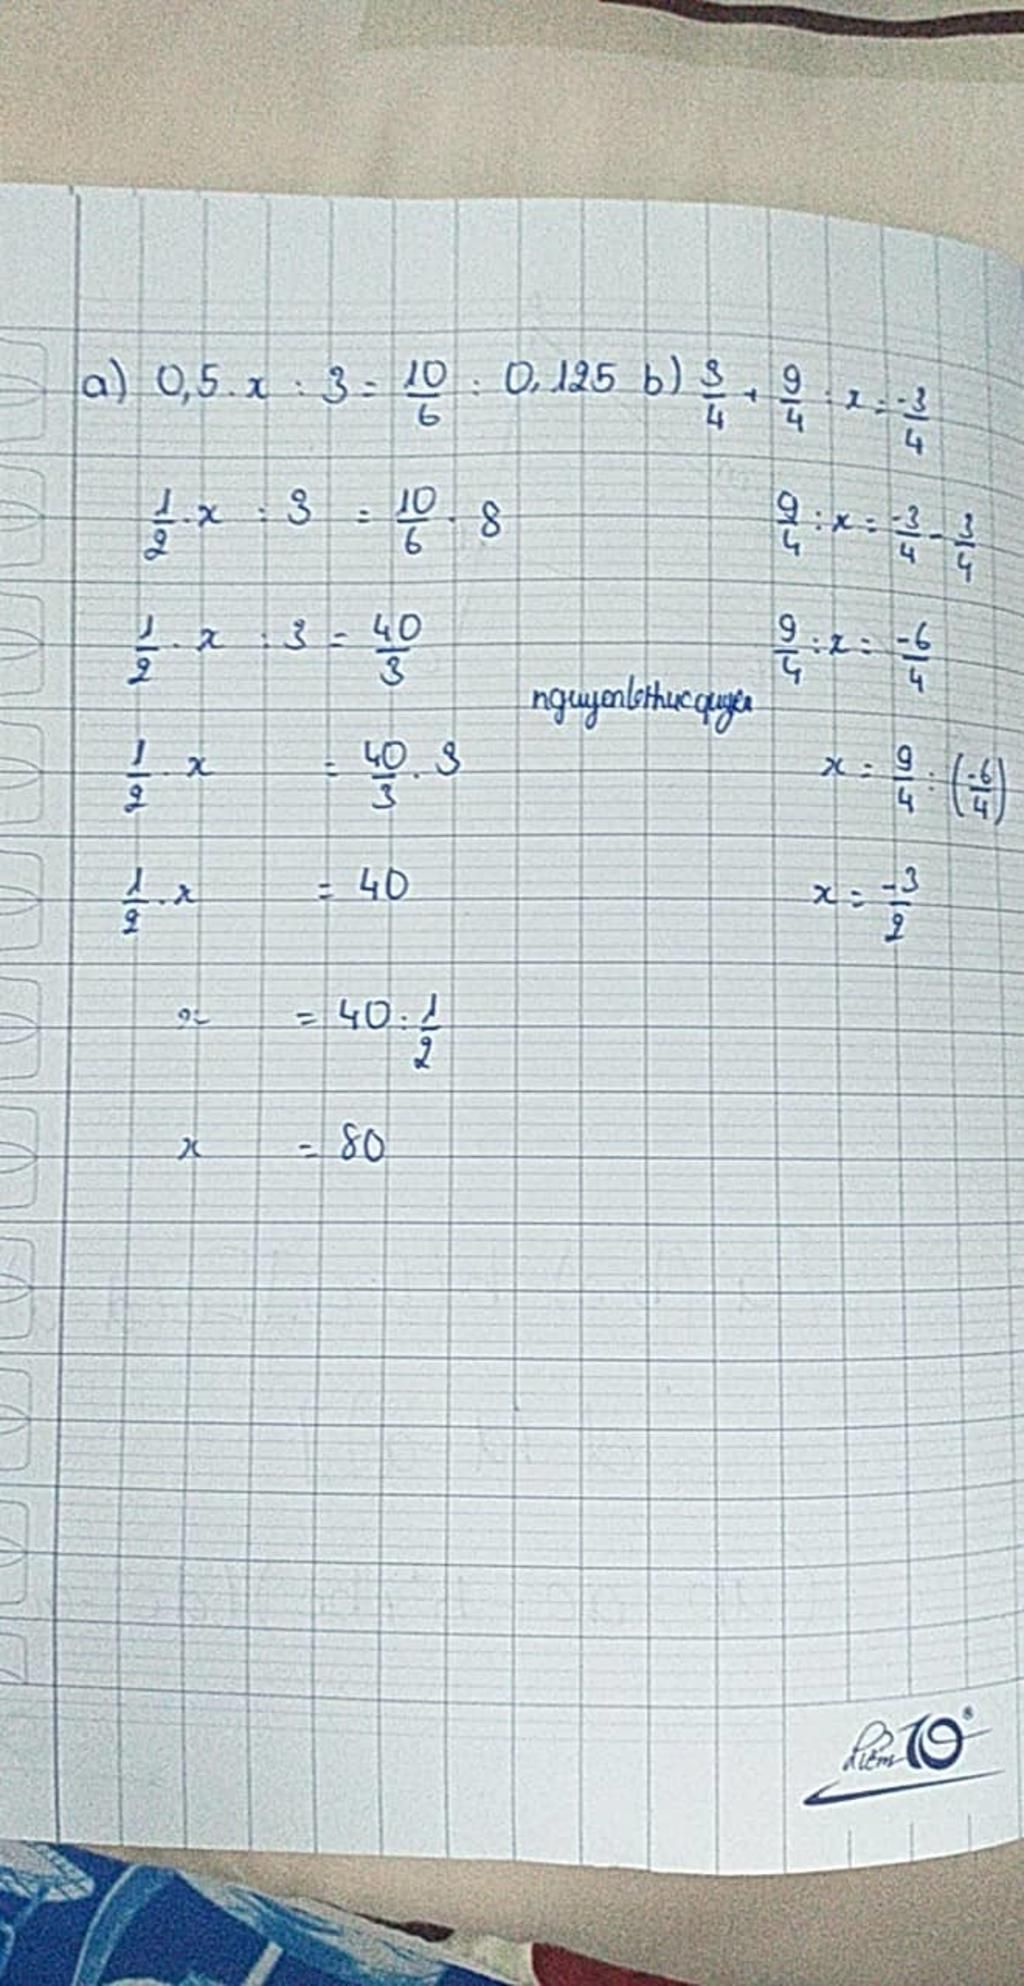 a) 0,5 . x : 3 = 10/6 : 0,125
1/2 . x : 3 = 10/6 . 8
1/2 . x : 3 = 40/3
1/2 . x = 40/3 . 3
1/2 . x = 40
x = 40 : 1/2
x = 80
b) 3/4 + 9/4 : x = -3/4
9/4 : x = -3/4 - 3/4
9/4 : x = -6/4
x = 9/4 : (-6/4)
x = -3/2
nguyenlethucquyen
Điểm 10